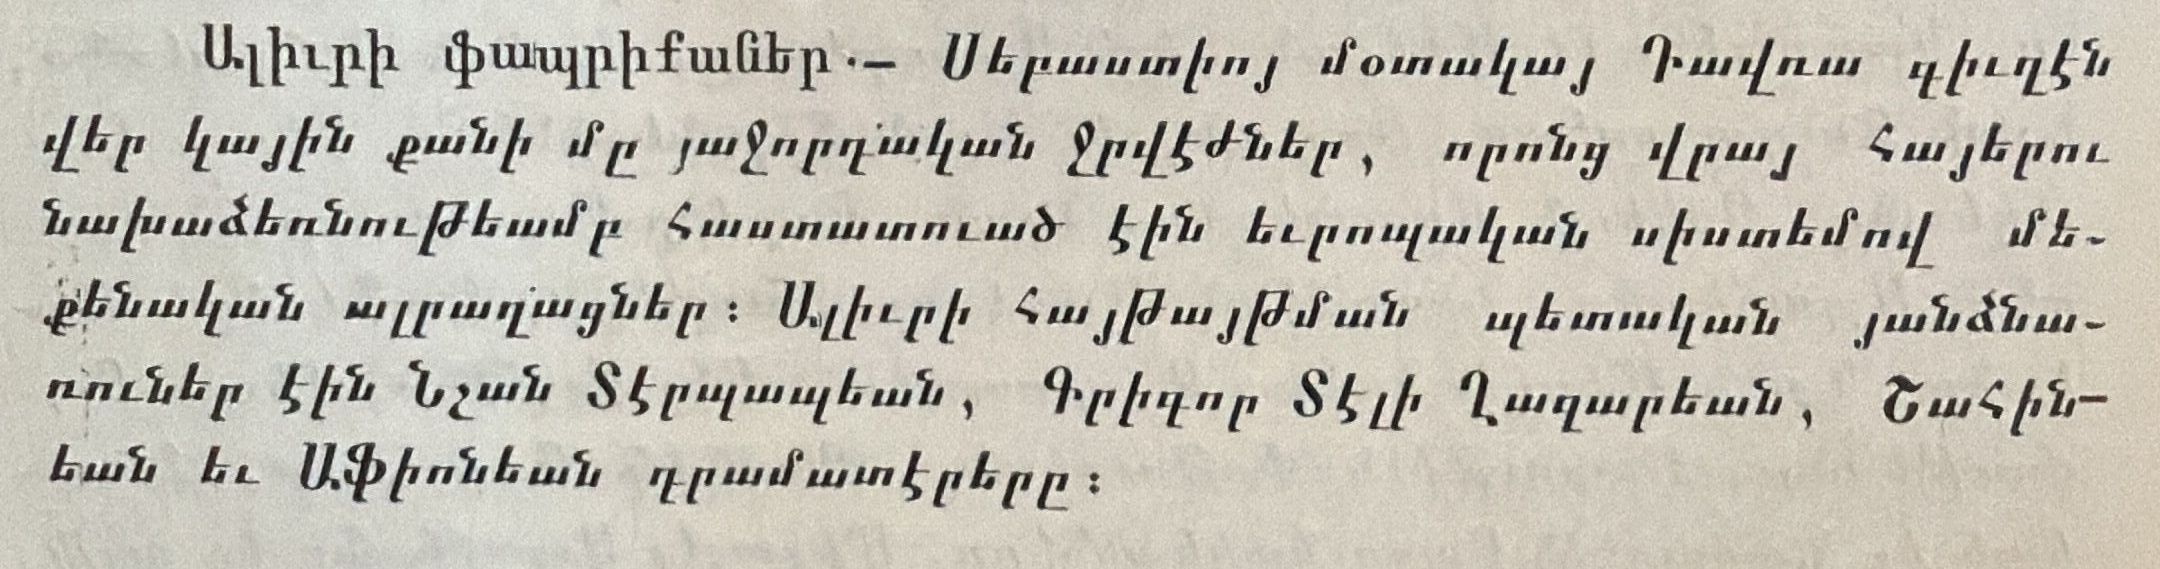 Ալիւրի փապրիքաներ.— Սեբաստիոյ մօտակայ Գավռա գիւղէն
վեր կային քանի մը յաջորդական ջրվէժներ, որոնց վրայ Հայերու
նախաձեռնութեամբ հաստատուած էին եւրոպական սիստեմով մե-
քենական ալրաղացներ։ Ալիւրի հայթայթման պետական յանձնա-
ռուներ էին Նշան Տէրպապեան, Գրիգոր Տէլի Ղազարեան, Շահին-
եան եւ Աֆիոնեան դրամատէրերը։